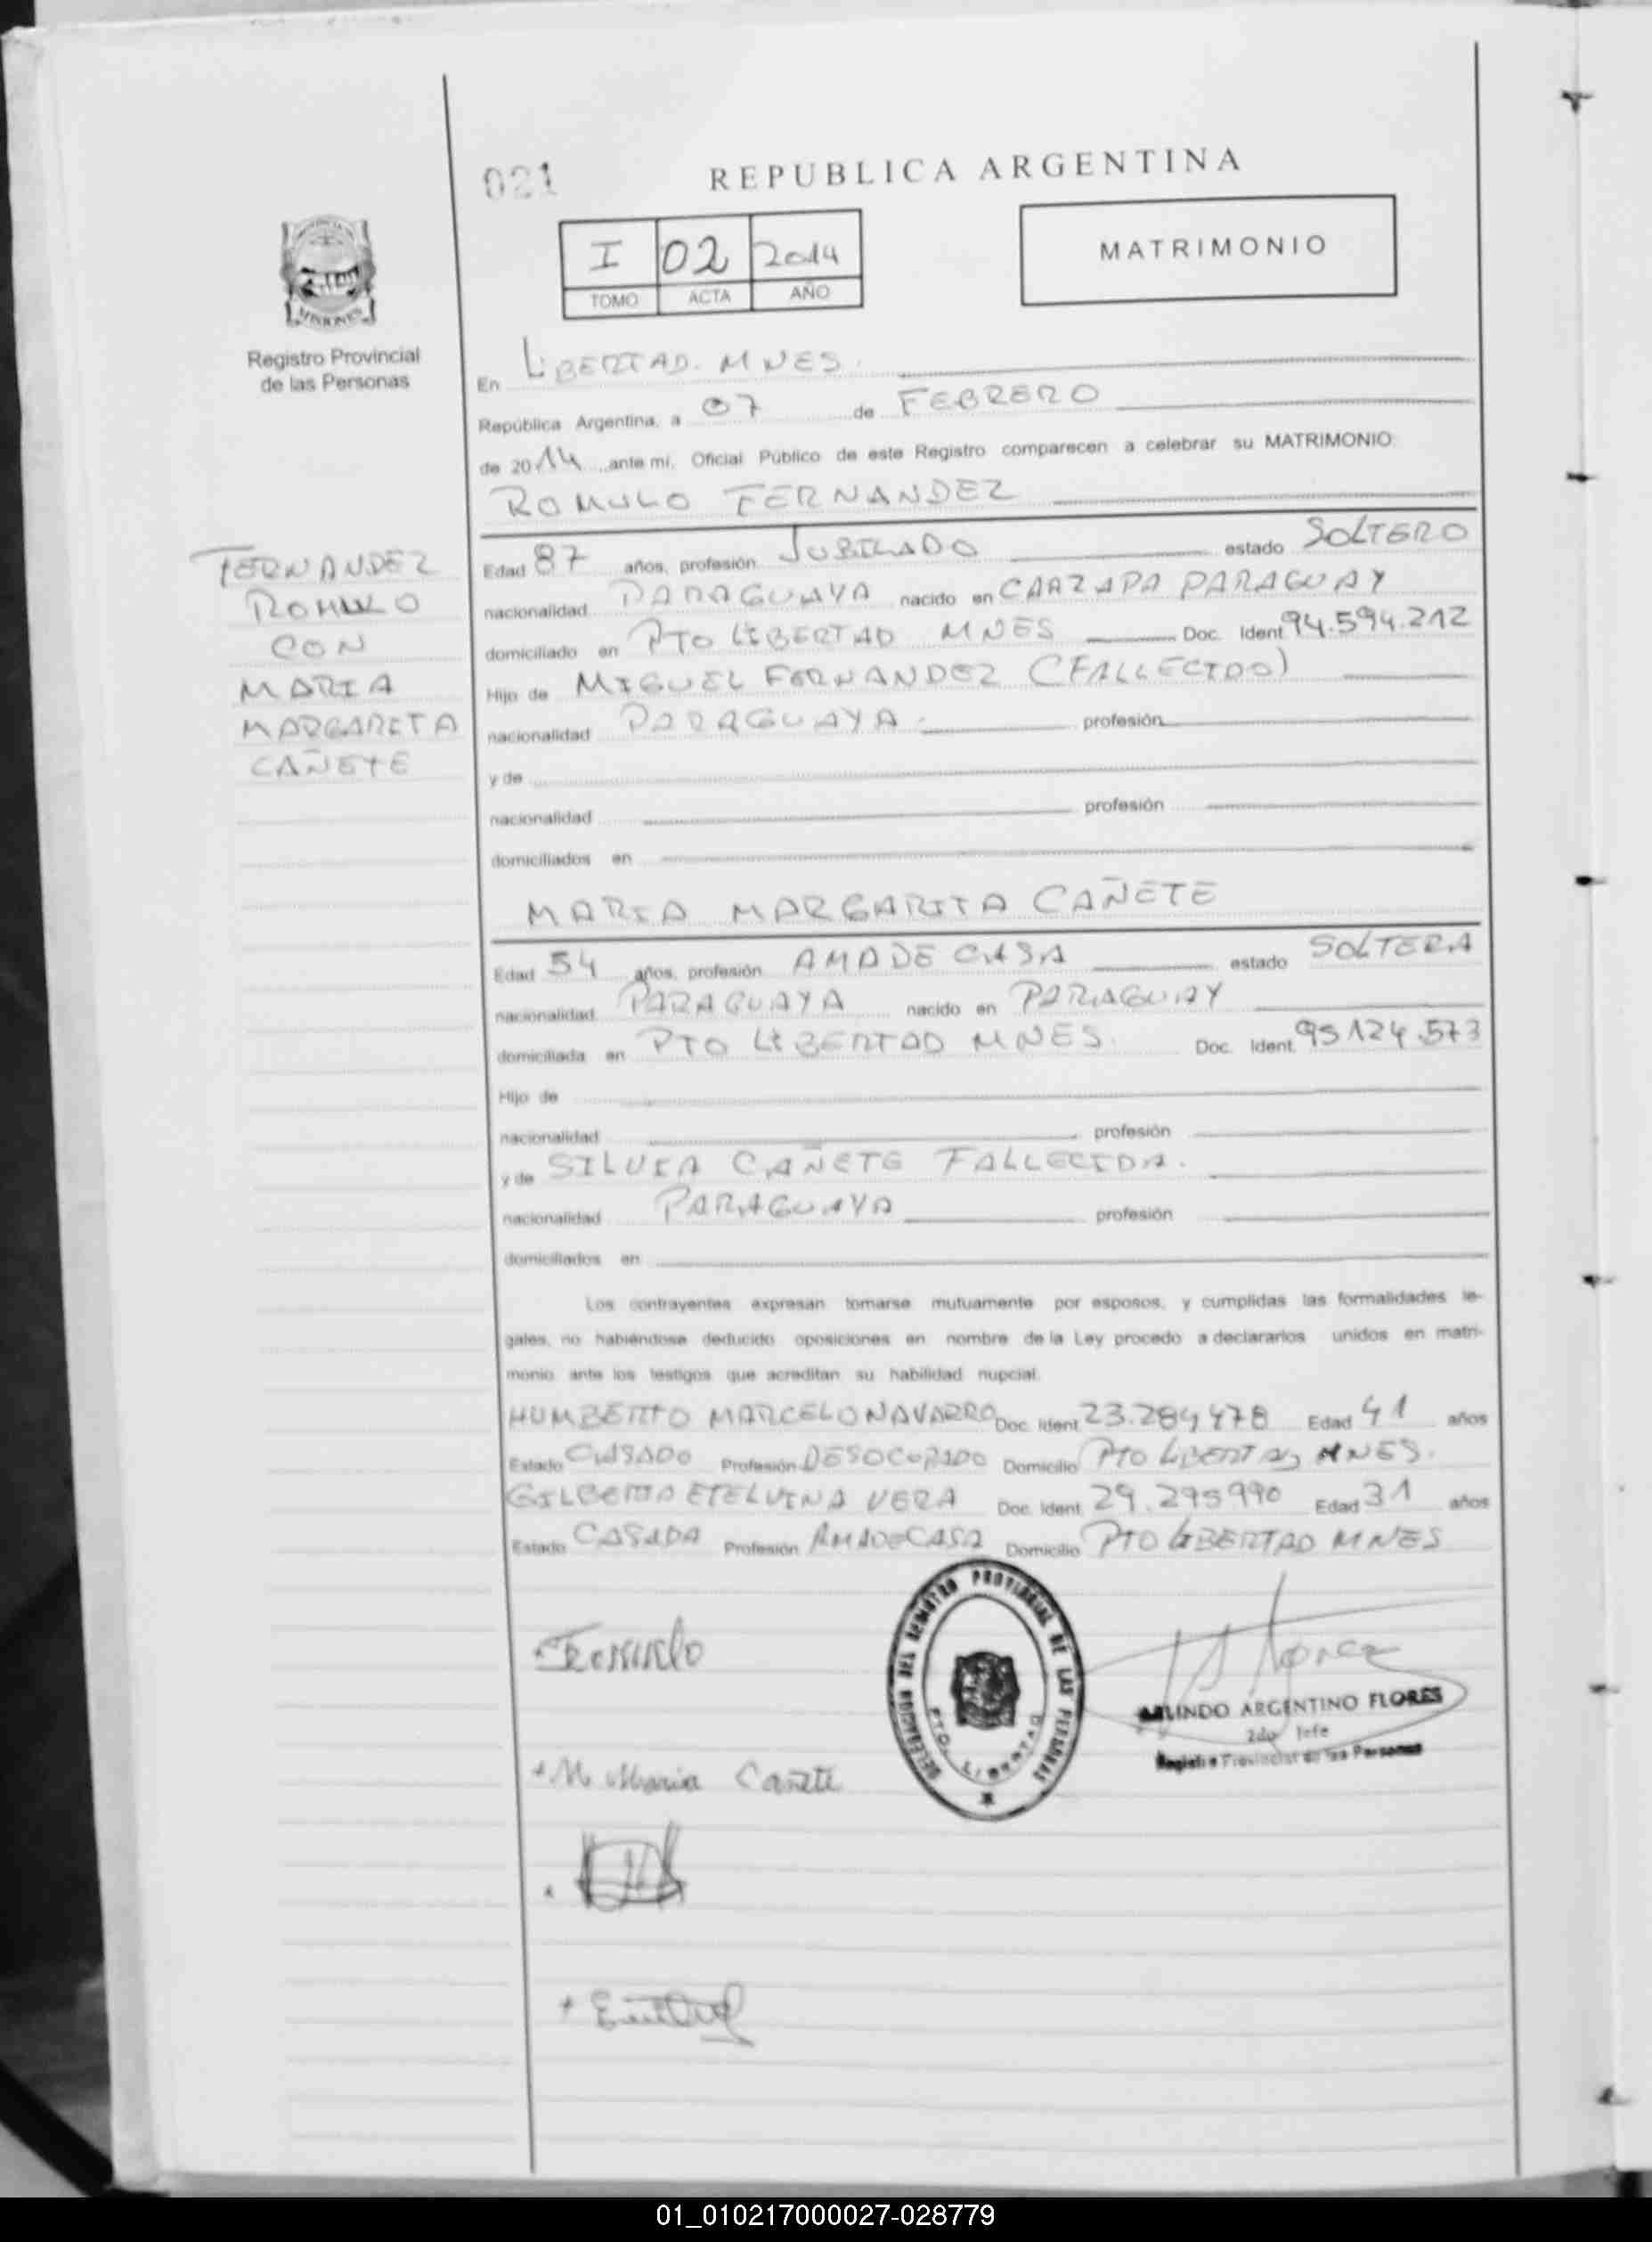 021
REPUBLICA ARGENTINA
I 02 2014
TOMO ACTA AÑO
MATRIMONIO
MISIONES
Registro Provincial
de las Personas
En LIBERTAD. MNES.
República Argentina, a 07 de FEBRERO
de 2014 ante mí, Oficial Público de este Registro comparecen a celebrar su MATRIMONIO:
ROMULO FERNANDEZ
FERNANDEZ
ROMULO
CON
MARIA
MARGARITA
CAÑETE
Edad 87 años, profesión JUBILADO estado SOLTERO
nacionalidad PARAGUAYA nacido en CAAZAPA PARAGUAY
domiciliado en PTO LIBERTAD MNES Doc. Ident 94.594.212
Hijo de MIGUEL FERNANDEZ (FALLECIDO)
nacionalidad PARAGUAYA. profesión
y de
nacionalidad profesión
domiciliados en
MARIA MARGARITA CAÑETE
Edad 54 años, profesión AMA DE CASA estado SOLTERA
nacionalidad PARAGUAYA nacido en PARAGUAY
domiciliada en PTO LIBERTAD MNES. Doc. Ident. 95124.573
Hijo de
nacionalidad profesión
y de SILVIA CAÑETE FALLECIDA.
nacionalidad PARAGUAYA profesión
domiciliados en
Los contrayentes expresan tomarse mutuamente por esposos, y cumplidas las formalidades le-
gales, no habiéndose deducido oposiciones en nombre de la Ley procedo a declararlos unidos en matri-
monio ante los testigos que acreditan su habilidad nupcial.
HUMBERTO MARCELO NAVARRO Doc. Ident 23.284478 Edad 41 años
Estado CASADO Profesión DESOCUPADO Domicilio PTO LIBERTAD MNES.
GILBERTA ETELVINA VERA Doc. Ident. 29.295990 Edad 31 años
Estado CASADA Profesión AMA DE CASA Domicilio PTO LIBERTAD MNES
DELEGACION DEL REGISTRO PROVINCIAL DE LAS PERSONAS
PTO. LIBERTAD
Romulo
ARLINDO ARGENTINO FLORES
2do Jefe
Registro Provincial de las Personas
+ M Maria Cañete
01_010217000027-028779